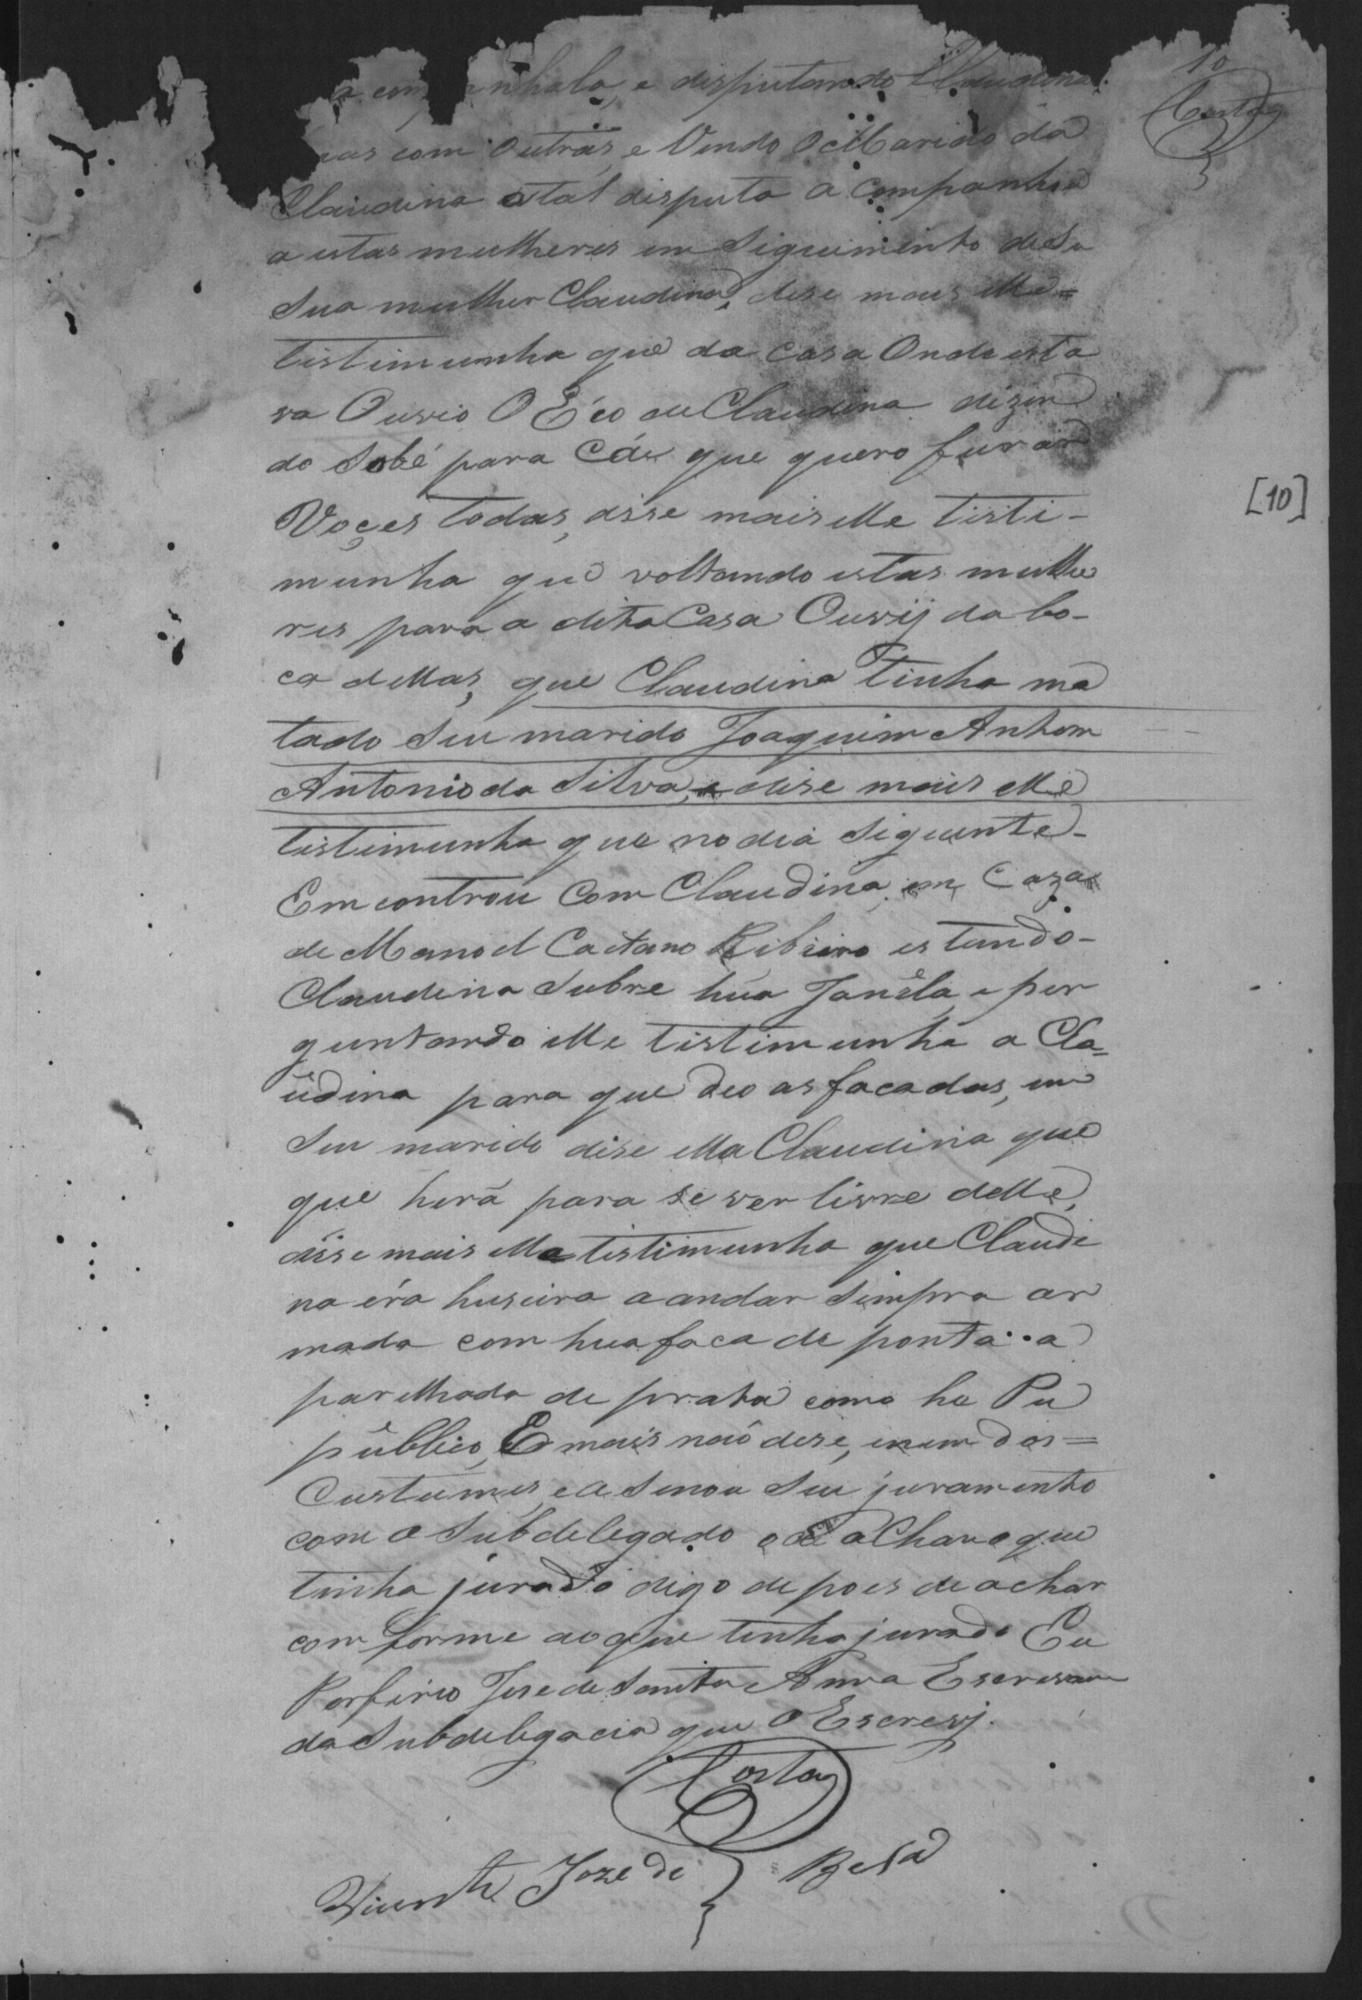 10
Costa
e disputando Claudina
com outras, e Vendo o Marido da
Claudina atal disputa a companhou
a estas mulheres em Siguimento desa
Sua mulher Claudina, dise mais elle=
tistimunha que da casa Onde esta
va Ouvio O Éco de Claudina dizen
do Sobé para Cá que quero furar
Voçes todas, disse mais elle tisti-
munha que voltando estas mulhe
res para a dita Casa Ouvij da bo-
ca dellas, que Claudina tinha ma
tado Seu marido Joaquim Antom
Antonio da Silva, e dise mais elle
tistimunha que no dia Siguinte-
Emcontrou Com Claudina em Caza
de Manoel Caetano Ribeiro estando-
Claudina Subre húa Janéla, e per
guntando elle tistimunha a Cla=
udina para que deo as facadas, em
Seu marido dise ella Claudina que
que herá para se ver livre delle,
disse mais elle tistimunha que Claudi
na éra huseira a andar Simpra ar
mada com hua faca de ponta a
parelhada de prata como he Pu
público, E mais naõ dise, enem dos=
Custumes, e a Sinou Seu juramento
com o Subdelegado e aChar o que
tinha jurado digo depoes de achar
comforme ao que tinha jurado Eu
Porfirio Jose de Santa Anna Escrivam
da Subdelegacia que O Escrevj.
Costa
Vicente Joze de Besa
[10]